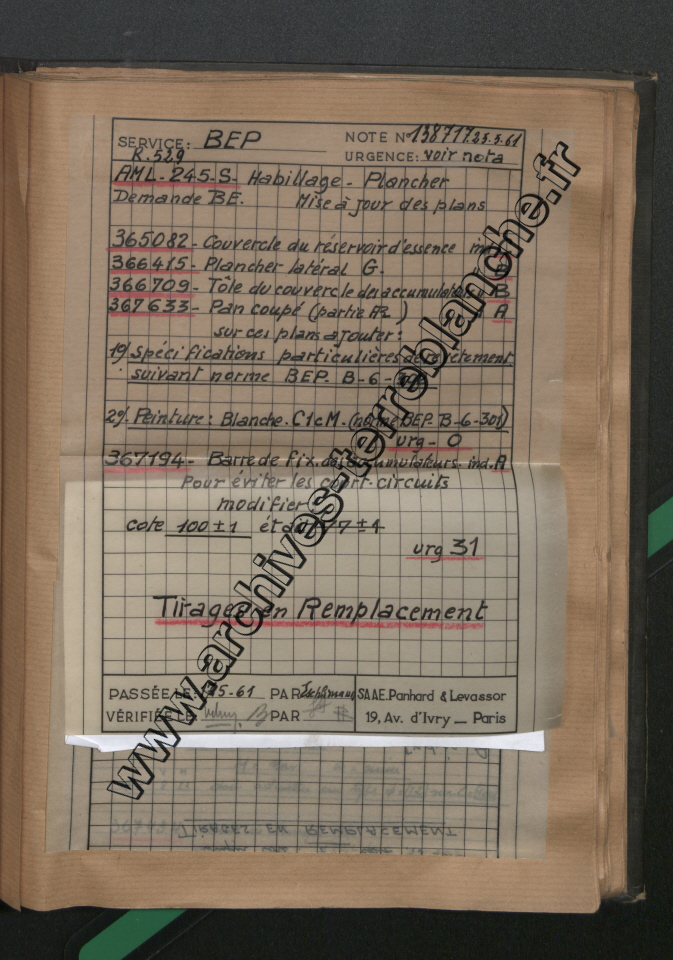 SERVICE: BEP NOTE N° 138717 25.5.61
R.529 URGENCE: voir nota
AML-245-S- Habillage - Plancher
Demande BE. Mise à jour des plans
365082 - Couvercle du réservoir d'essence
366415 - Plancher latéral G.
366709 - Tôle du couvercle des accumulateurs B
367633 - Pan coupé (partie AR) A
sur ces plans ajouter:
1°/ Spécifications particulières de revêtement
suivant norme BEP. B-6-
2°/ Peinture: Blanche. C1cM. (norme BEP. B-6-301)
urg - O
367194 - Barre de fix. des accumulateurs. ind. A
Pour éviter les court-circuits
modifier
cote 100 ± 1 était 77 ± 1
urg 31
Tirages en Remplacement
PASSÉE LE: 5-61 PAR SAAE. Panhard & Levassor
VÉRIFIÉE LE: PAR 19, Av. d'Ivry — Paris
TIRAGES EN REMPLACEMENT
www.archives-terreblanche.fr